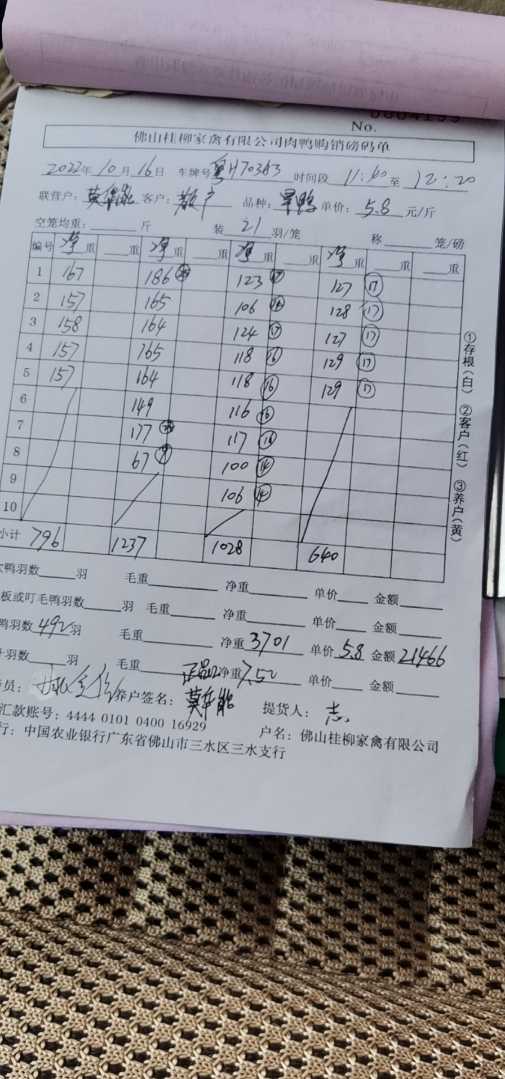 No.
佛山桂柳家禽有限公司肉鸭购销磅码单
2022年10月16日 车牌号粤H70383 时间段 11:40至12:20
联营户: 客户:散户 品种: 单价:5.8元/斤
空笼均重: 斤 装21羽/笼 称 笼/磅
编号 净重 重 净重 重 净重 重 净重 重 重
1 167 186 123 17 127 17
2 157 165 106 128 17
3 158 164 124 17 127 17
4 157 165 118 16 129 17
5 157 164 118 16 129 17
6 149 116 16
7 177 117 16
8 67 9 100 14
9 106 14
10
小计 796 1237 1028 640
①存根(白) ②客户(红) ③养户(黄)
鸭羽数 羽 毛重 净重 单价 金额
板或叮毛鸭羽数 羽 毛重 净重 单价 金额
鸭羽数492羽 毛重 净重3701 单价5.8 金额21466
羽数 羽 毛重 正品 净重7.52 单价 金额
员: 养户签名:莫华能 提货人:志
汇款账号:4444 0101 0400 16929 户名:佛山桂柳家禽有限公司
行:中国农业银行广东省佛山市三水区三水支行